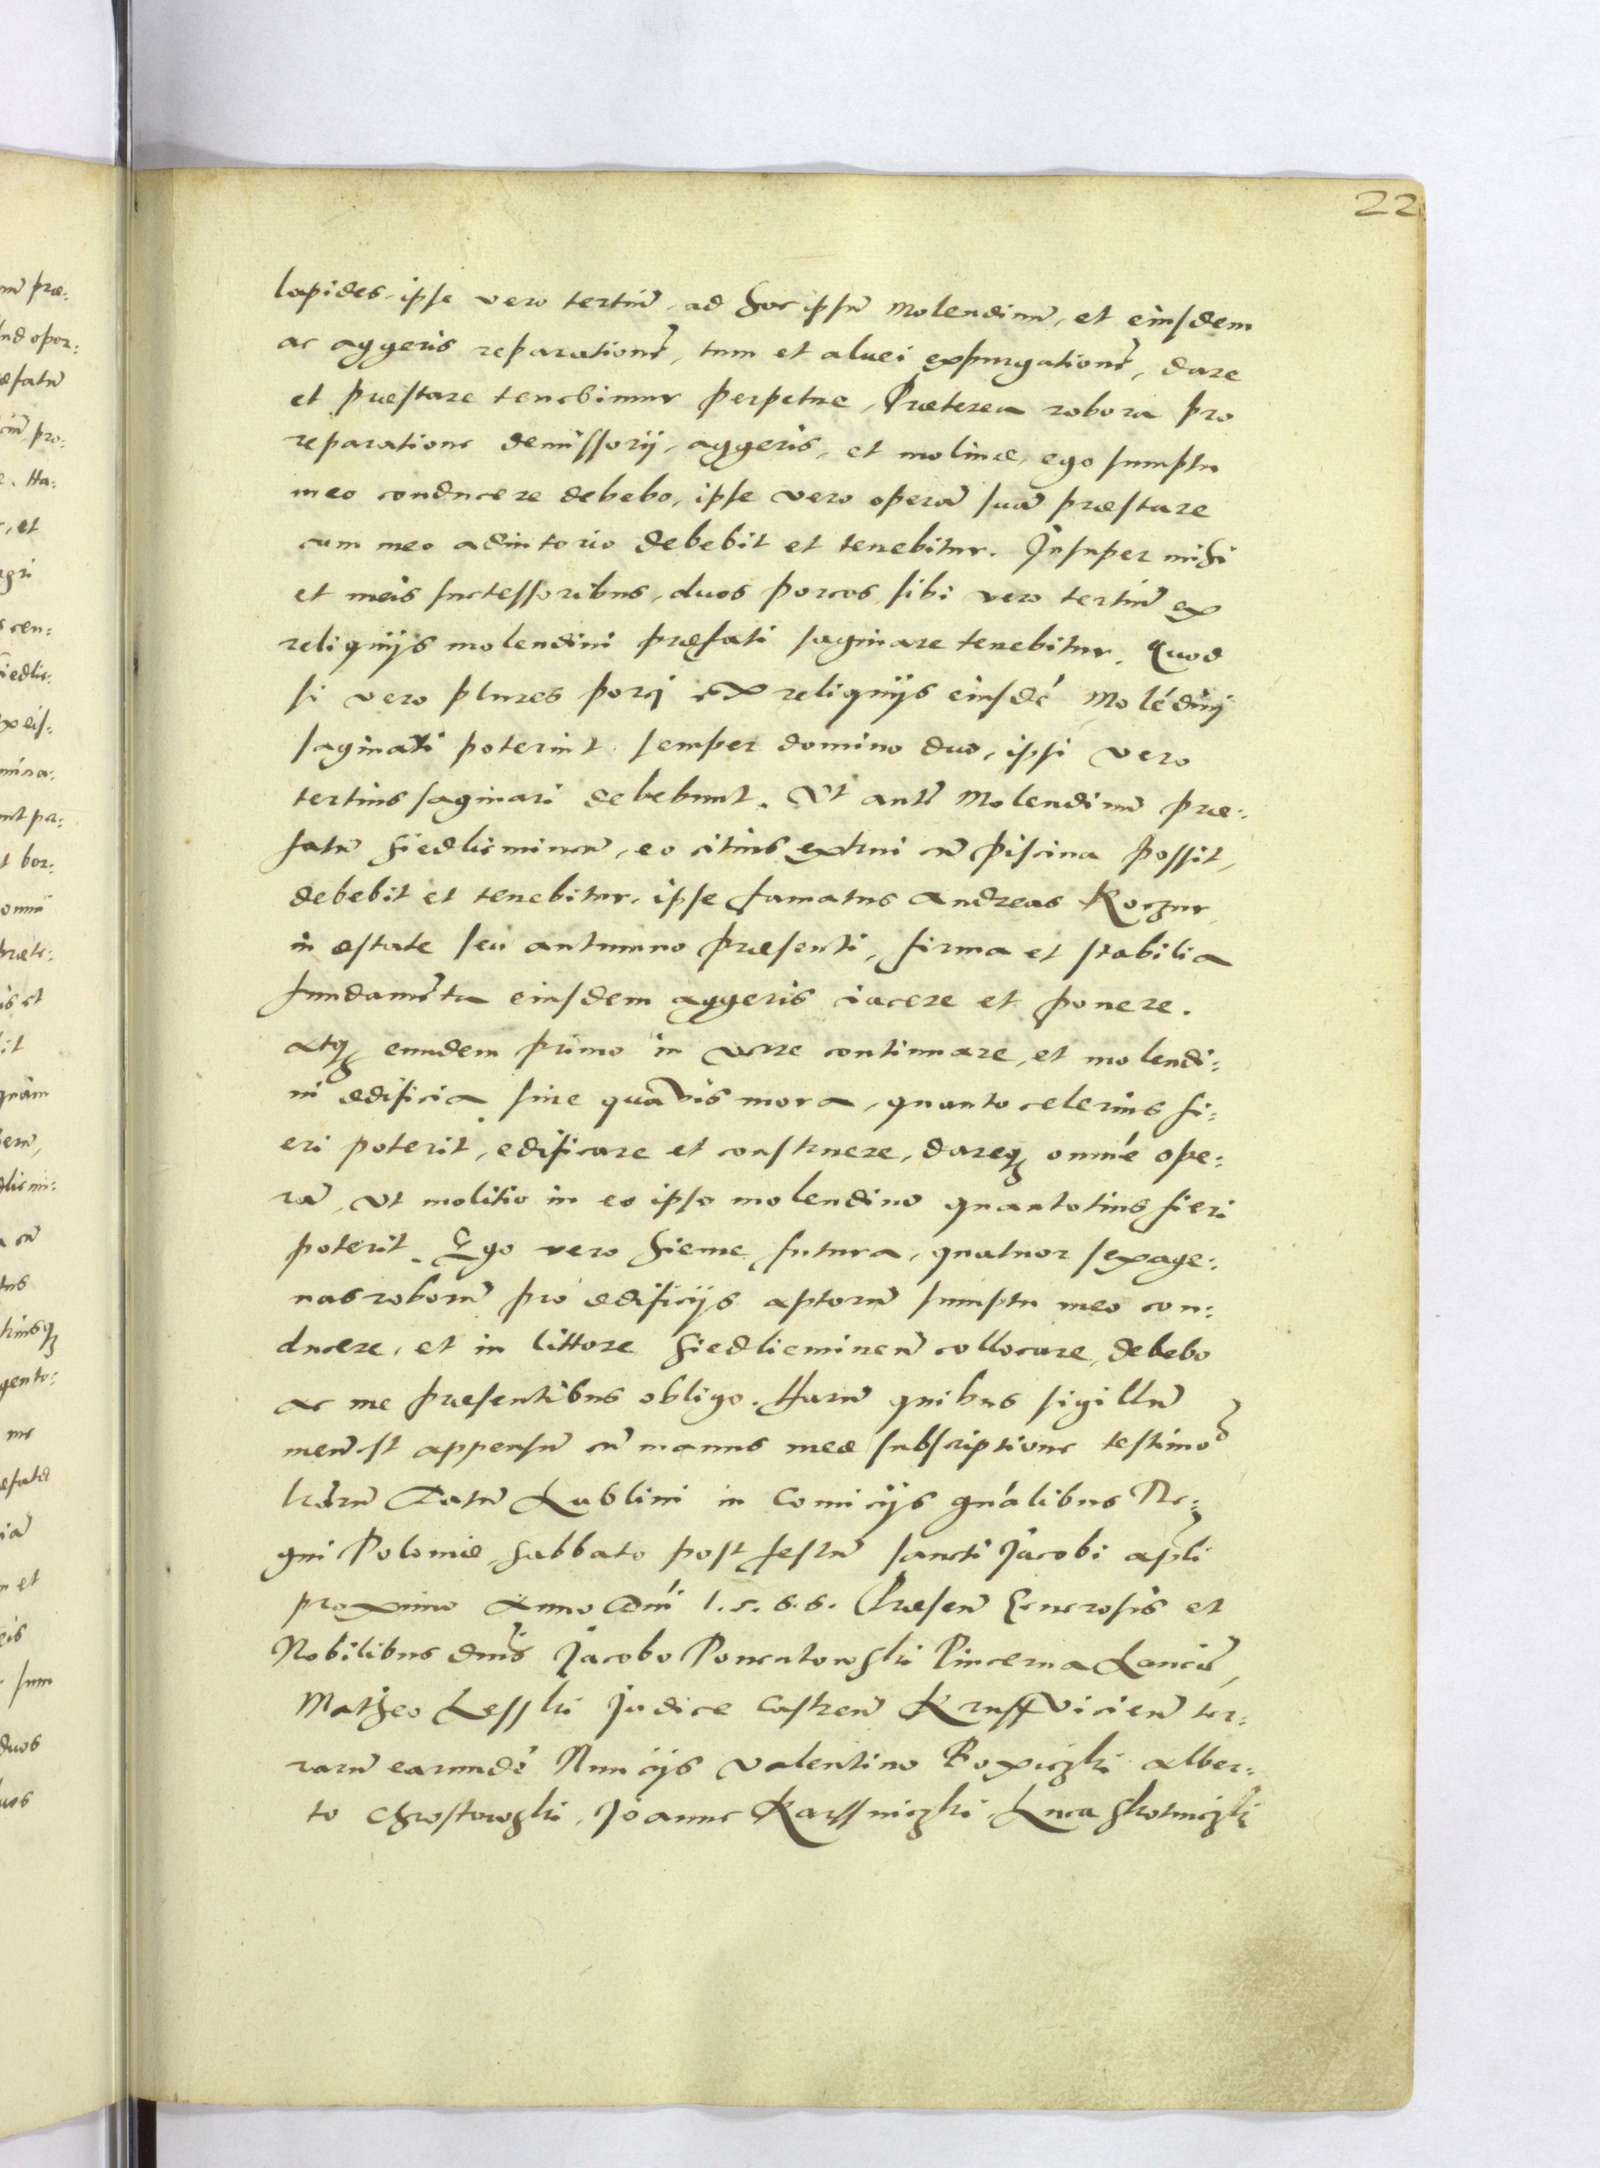 22
lapides, ipse vero tertiũ, ad hoc ipsũ Molendinũ, et eiusdem
ac aggeris reparationẽ, tum et alvei expurgationẽ, dare
et præstare tenebimur perpetue, Præterea robora pro
reparatione demissorij, aggeris, et molinæ, ego sumptu
meo conducere debebo, ipse vero operã suã præstare
cum meo adiutorio debebit et tenebitur. Insuper mihi
et meis successoribus, duos porcos, sibi vero tertiũ ex
reliquijs molendini præfati saginare tenebitur. Quod
si vero plures porcj ex reliquijs eiusdẽ Molẽdinj
saginari poterint semper domino duo, ipsi vero
tertius saginari debebunt. Ut autẽ Molendinũ præ:
fatũ Siedlieminen̄, eo citius extrui cũ piscina possit,
debebit et tenebitur, ipse famatus Andreas Koczur,
in æstate seu autumno præsenti, firma et stabilia
fundamẽta eiusdem aggeris iacere et ponere.
Atq₃ eundem primo in vere continuare, et molendi:
ni ædificia sine quavis mora, quanto celerius fi:
eri poterit, edificare et construere, dareq₃ omnẽ ope:
rã, ut molitio in eo ipso molendino quantotius fieri
poterit. Ego vero hieme futura, quatuor sexage:
nas roborũ pro ædificijs aptorũ sumptu meo con:
ducere, et in littore Siedlieminen̄ collocare, debebo
ac me præsentibus obligo. Harũ quibus sigillũ
meũ est appensũ cũ manus meæ subscriptione testimo⁰
lr̃arũ Datũ Lublini in Comicijs gñalibus Re:
gni Poloniæ, Sabbato post festũ sancti Jacobi ap̃li
proximo Anno Dñi 1.5.6.6. Præsen̄ Generosis et
Nobilibus dñis Jacobo Poneatowski Pincerna Lancic̃,
Matheo Lesski Judice Castren̄ Krussvicien̄ ter:
rarũ earundẽ Nuncijs Valentino Boxiczki Alber:
to Chrostowski, Joanne Karssniczki, Luca Skotniczki